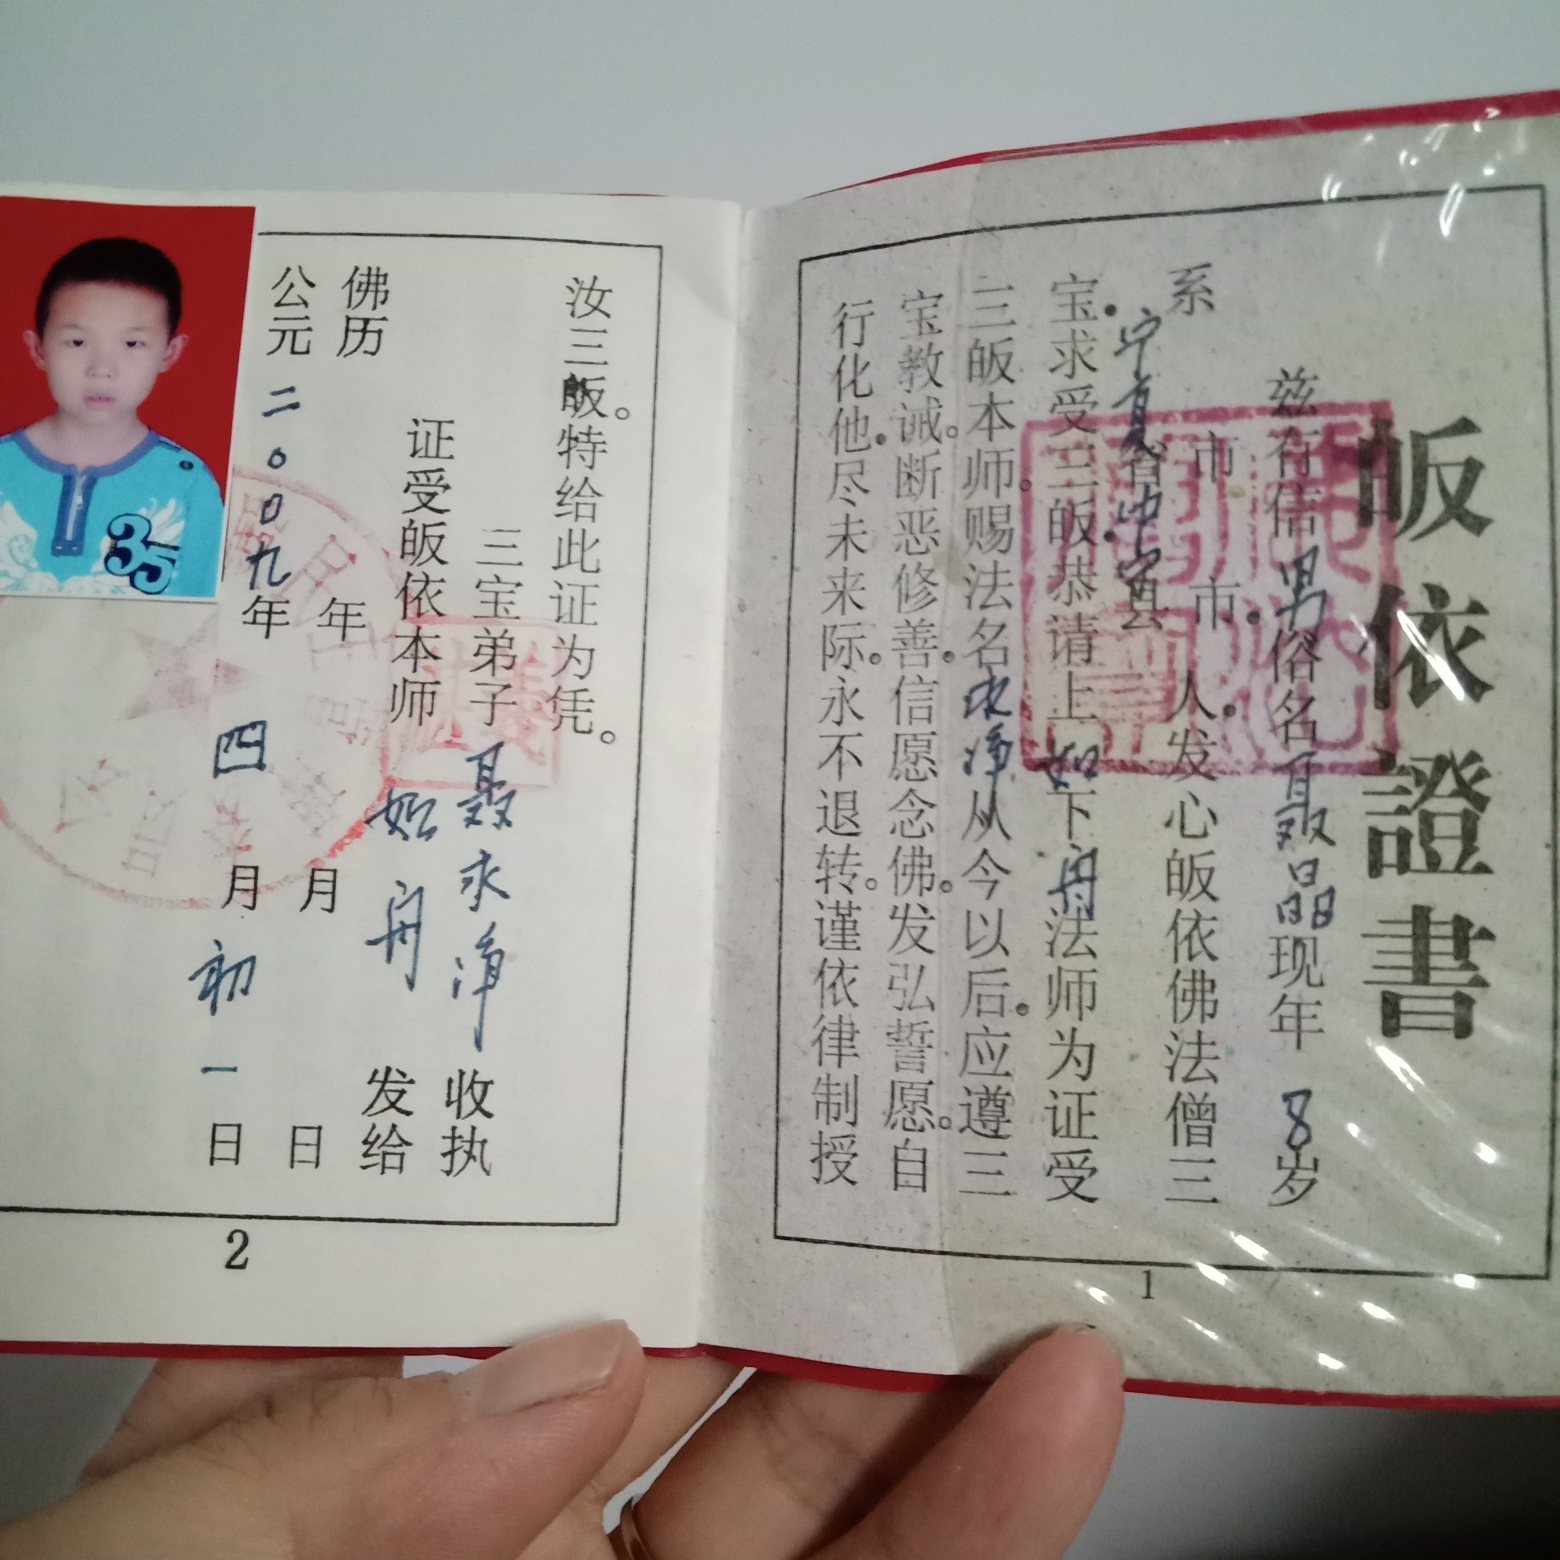 皈依證書
兹有信男俗名聂晶现年8岁
市 市。人。发心皈依佛法僧三
系 宁夏省中宁县
宝。求受三皈。恭请上如下舟法师为证受
三皈本师。赐法名永净从今以后。应遵三
宝教诫。断恶修善。信愿念佛。发弘誓愿。自
行化他。尽未来际。永不退转。谨依律制授
1
汝三皈。特给此证为凭。
三宝弟子聂永净收执
证受皈依本师如舟发给
佛历 年 月 日
公元二00九年四月初一日
2
35